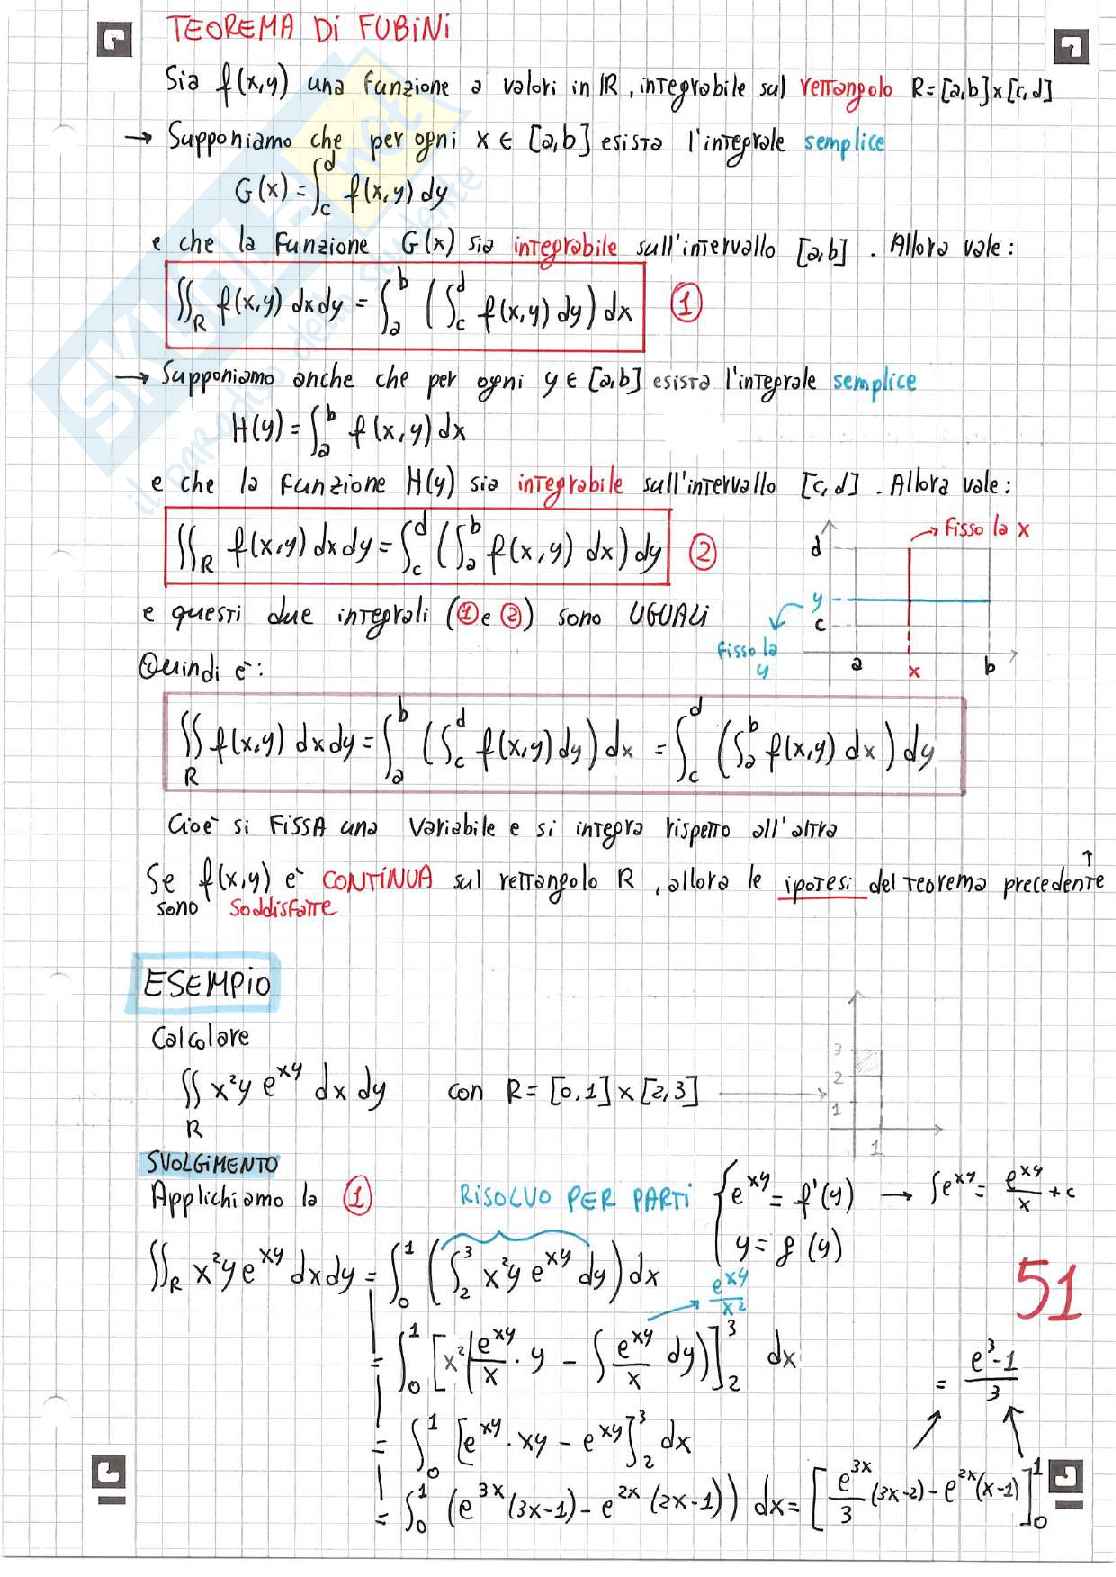 TEOREMA Di FUBiNi
Sia f(x,y) una funzione a valori in ℝ, integrabile sul rettangolo R=[a,b]x[c,d]
→ Supponiamo che per ogni x ∈ [a,b] esista l'integrale semplice
G(x)=∫_c^d f(x,y) dy
e che la funzione G(x) sia integrabile sull'intervallo [a,b]. Allora vale:
∬_R f(x,y) dxdy = ∫_a^b (∫_c^d f(x,y) dy) dx ①
→ Supponiamo anche che per ogni y ∈ [a,b] esista l'integrale semplice
H(y)=∫_a^b f(x,y) dx
e che la funzione H(y) sia integrabile sull'intervallo [c,d]. Allora vale:
∬_R f(x,y) dxdy = ∫_c^d (∫_a^b f(x,y) dx) dy ②
d
fisso la x
y
c
fisso la
y
a
x
b
e questi due integrali (① e ②) sono UGUALi
Quindi è:
∬_R f(x,y) dxdy = ∫_a^b (∫_c^d f(x,y) dy) dx = ∫_c^d (∫_a^b f(x,y) dx) dy
Cioè si FISSA una variabile e si integra rispetto all'altra
Se f(x,y) è CONTINUA sul rettangolo R, allora le ipotesi del teorema precedente ↑
sono soddisfatte
ESEMPiO
Calcolare
∬_R x²y e^{xy} dx dy con R=[0,1]x[2,3] →
3
2
1
1
SVOLGiMENTO
Applichiamo la ①
RiSOLVO PER PARTi { e^{xy} = f'(y) → ∫e^{xy} = e^{xy}/x + c
y = g(y)
∬_R x²y e^{xy} dxdy = ∫_0^1 (∫_2^3 x²y e^{xy} dy) dx
e^{xy}/x²
= ∫_0^1 [x²(e^{xy}/x · y − ∫ e^{xy}/x dy)]_2^3 dx
= ∫_0^1 [e^{xy} · xy − e^{xy}]_2^3 dx
= ∫_0^1 (e^{3x}(3x-1) − e^{2x}(2x-1)) dx = [e^{3x}/3 (3x-2) − e^{2x}(x-1)]_0^1
= e³-1/3
51
SKUOLA.net
il portale dello studente